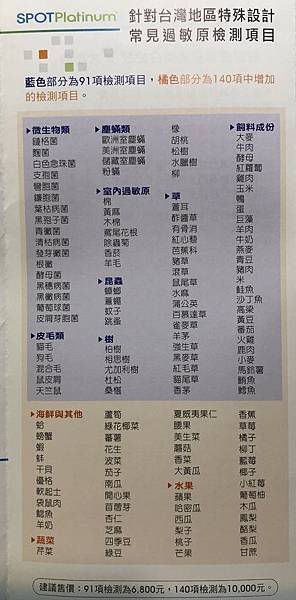 SPOTPlatinum™
針對台灣地區特殊設計
常見過敏原檢測項目
藍色部分為91項檢測項目，橘色部分為140項中增加
的檢測項目。
▶微生物類
鏈格菌
麴菌
白色念珠菌
支孢菌
彎胞菌
鐮胞菌
葉枯病菌
黑孢子菌
青黴菌
清枯病菌
發芽黴菌
根黴
酵母菌
黑穗病菌
黑黴病菌
葡萄球菌
皮屑芽胞菌
▶皮毛類
貓毛
狗毛
混合毛
鼠皮屑
天竺鼠
▶塵蟎類
歐洲室塵蟎
美洲室塵蟎
儲藏室塵蟎
粉蟎
▶室內過敏原
棉
黃麻
木棉
鳶尾花根
除蟲菊
香菸
羊毛
▶昆蟲
蟑螂
蒼蠅
蚊子
跳蚤
▶樹
柏樹
相思樹
尤加利樹
杜松
桑椹
橡
胡桃
松樹
水臘樹
柳
▶草
蒼耳
酢醬草
有骨消
紅心藜
芭蕉科
豬草
滾草
鼠尾草
水麻
蒲公英
百慕達草
雀麥草
羊茅
強生草
黑麥草
紅毛草
貓尾草
香茅
▶飼料成份
大麥
牛肉
酵母
紅蘿蔔
雞肉
玉米
鴨
蛋
巨藻
羊肉
牛奶
燕麥
青豆
豬肉
米
鮭魚
沙丁魚
高粱
黃豆
番茄
火雞
鹿肉
小麥
馬鈴薯
鮪魚
鱈魚
▶海鮮與其他
蛤
螃蟹
蝦
蚌
干貝
優格
軟起士
袋鼠肉
鯰魚
羊奶
▶蔬菜
芹菜
蘆筍
綠花椰菜
蕃薯
花生
菠菜
茄子
南瓜
開心果
苜蓿芽
杏仁
芝麻
四季豆
綠豆
夏威夷果仁
腰果
美生菜
蘑菇
香菜
大黃瓜
▶水果
蘋果
哈密瓜
西瓜
梨子
桃子
芒果
香蕉
草莓
橘子
柳丁
藍莓
椰子
小紅莓
葡萄柚
木瓜
鳳梨
酪梨
香瓜
甘蔗
建議售價：91項檢測為6,800元，140項檢測為10,000元。